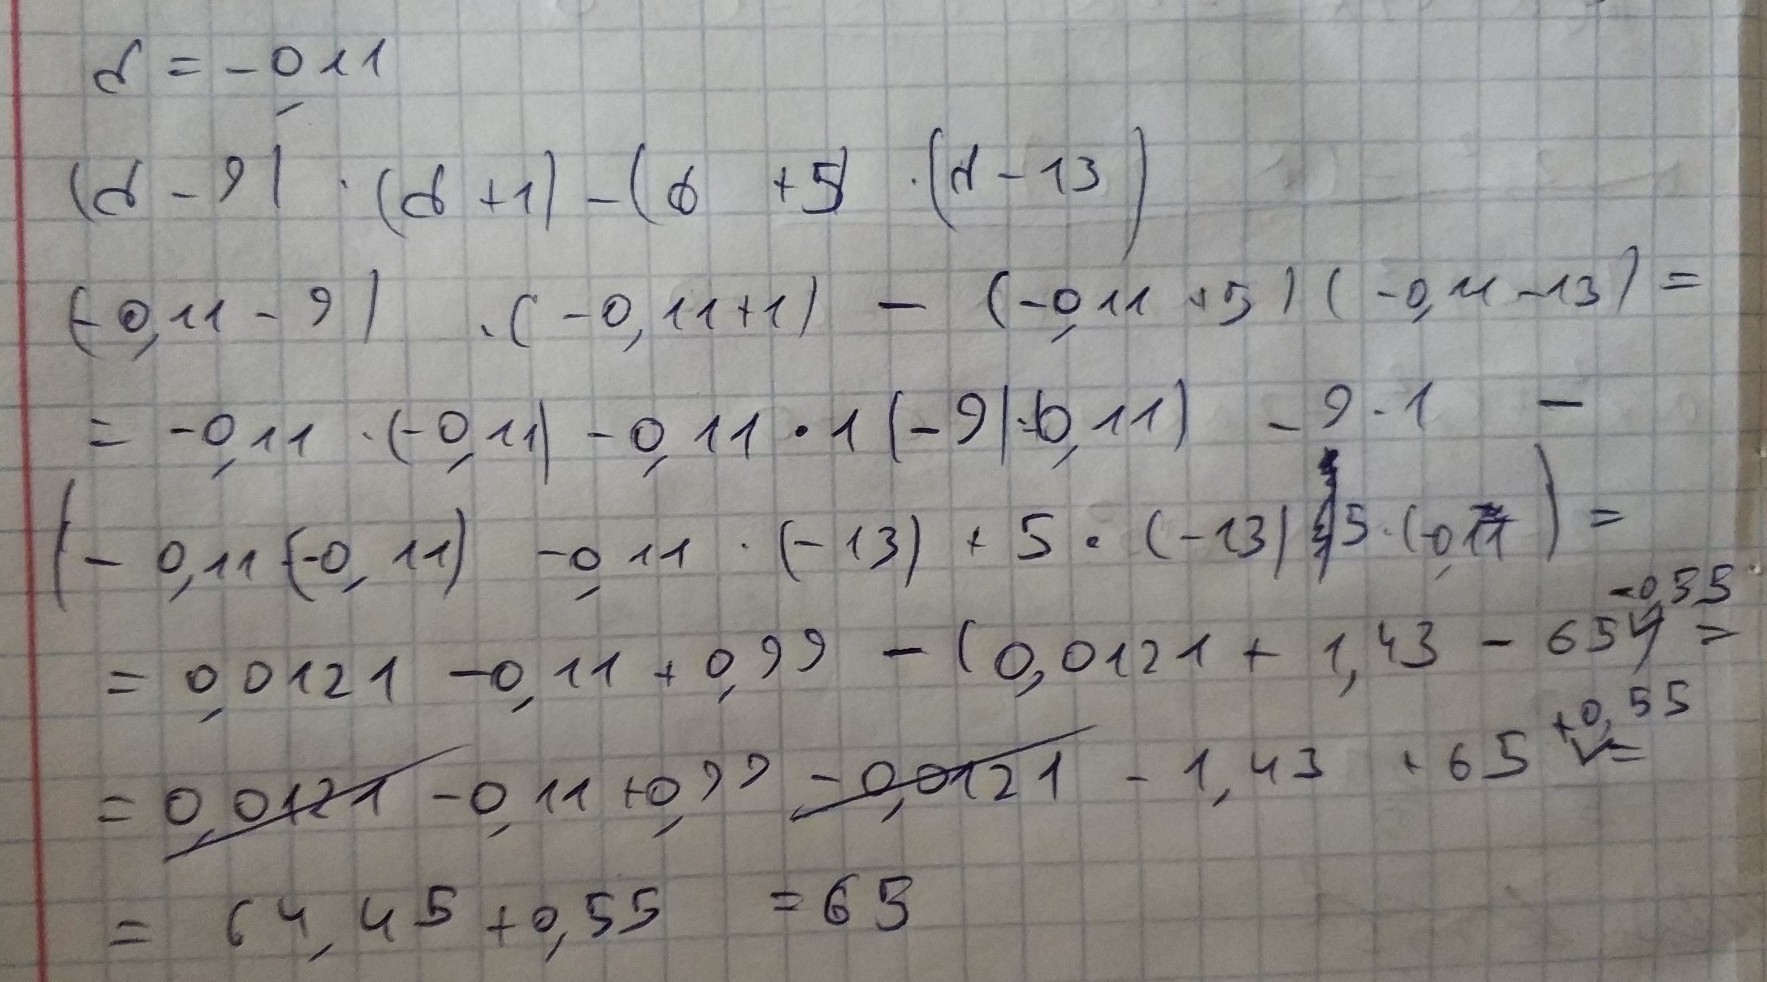 d = -0,11
(d - 9) · (d + 1) - (d + 5) · (d - 13)
(-0,11 - 9) · (-0,11+1) - (-0,11 +5) (-0,11 -13) =
= -0,11 · (-0,11) - 0,11 · 1 (-9)·(-0,11) - 9 · 1 -
(- 0,11 (-0,11) - 0,11 · (-13) + 5 · (-13) 5 · (-0,11)) =
= 0,0121 - 0,11 + 0,99 - (0,0121 + 1,43 - 65 -0,55) =
= 0,0121 - 0,11 + 0,99 - 0,0121 - 1,43 + 65 +0,55 =
= 64,45 + 0,55 = 65